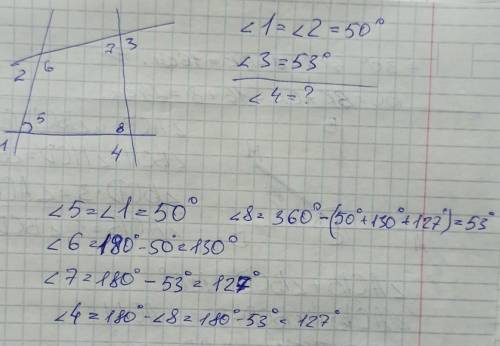 2 6 7 3
5 8
1 4
∠1 = ∠2 = 50°
∠3 = 53°
∠4 = ?
∠5 = ∠1 = 50° ∠8 = 360° - (50° + 130° + 127°) = 53°
∠6 = 180° - 50° = 130°
∠7 = 180° - 53° = 127°
∠4 = 180° - ∠8 = 180° - 53° = 127°